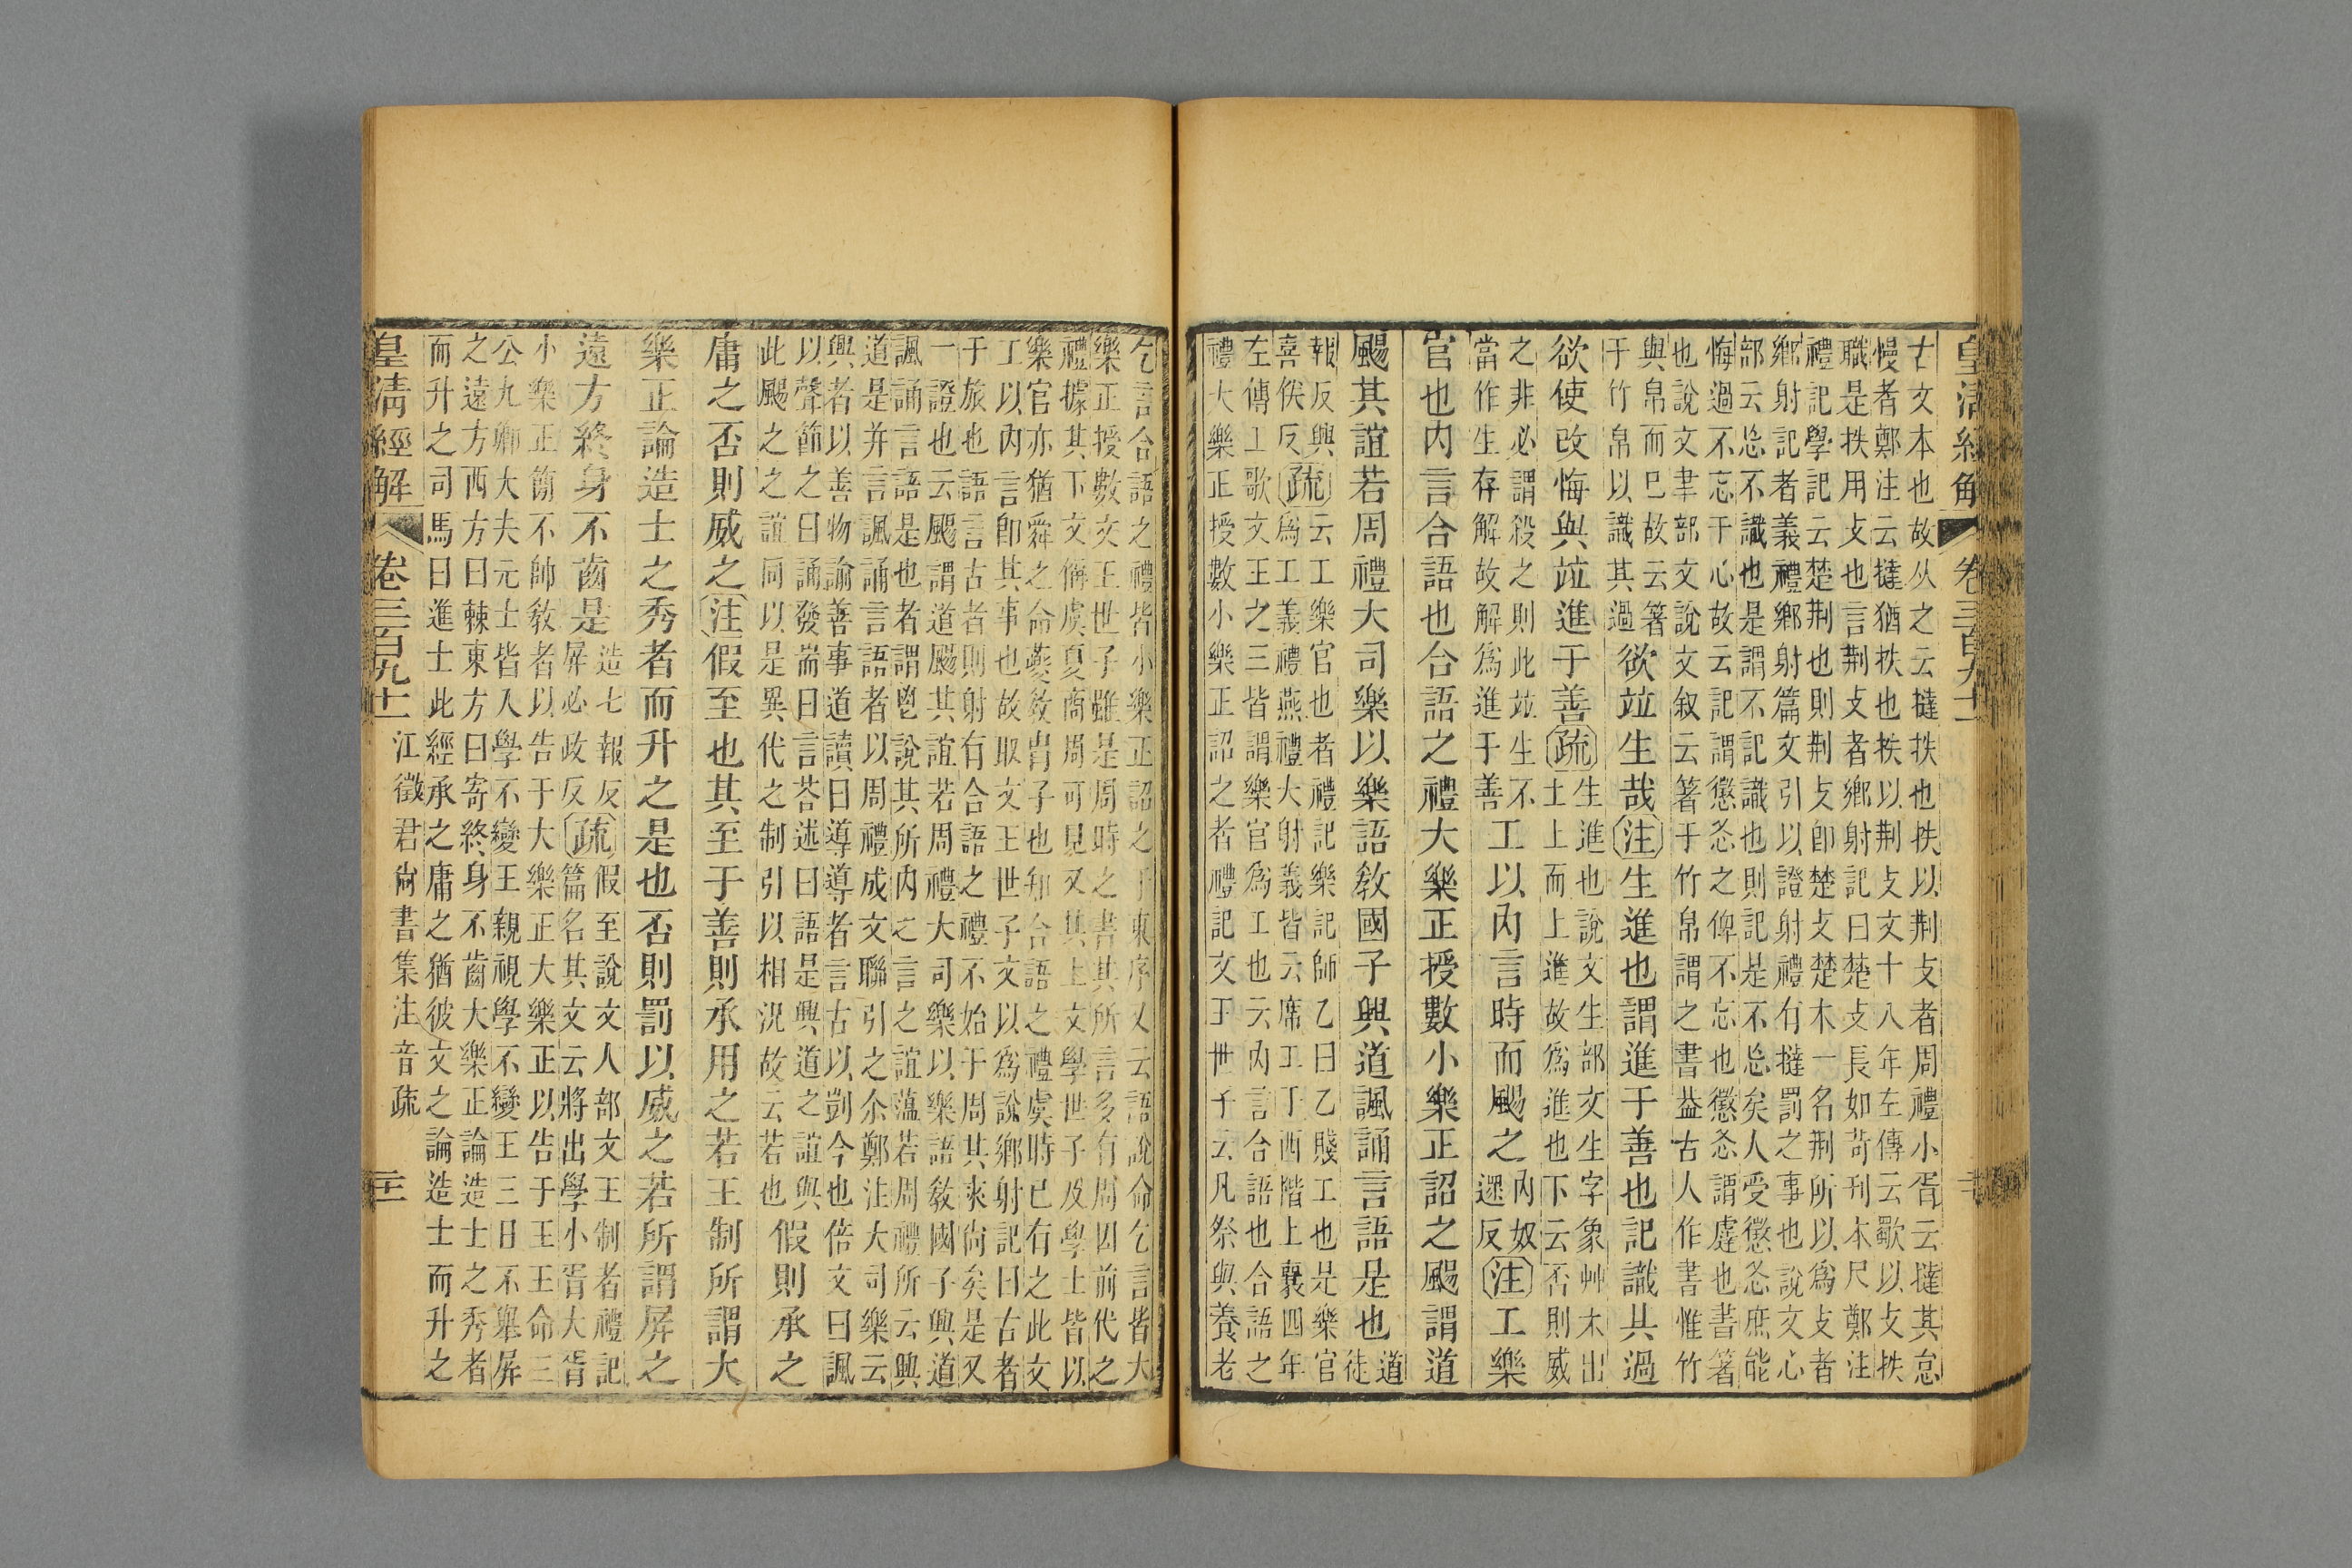 古文本也故从之云撻抶也抶以荆攴者周禮小胥云撻其怠
慢者鄭注云撻猶抶也抶以荆攴文十八年左傳云歜以攴抶
職是抶用攴也言荆攴者鄉射記曰楚攴長如苛刊本尺鄭注
禮記學記云楚荆也則荆攴卽楚攴楚木一名荆所以爲攴者
鄉射記者義禮鄉射篇文引以證射禮有撻罰之事也說文心
部云忘不識也是謂不記識也則記是不忘矣人受懲㣻庶能
悔過不忘于心故云記謂懲㣻之俾不忘也懲㣻謂虐也書箸
也說文聿部文說文叙云箸于竹帛謂之書益古人作書惟竹
與帛而巳故云箸
于竹帛以識其過
欲竝生哉注生進也謂進于善也記識其過
欲使改悔與竝進于善疏
生進也說文生部文生字象艸木出
土上而上進故爲進也下云否則威
之非必謂殺之則此竝生不
當作生存解故解爲進于善
工以內言時而颺之
內奴
遝反
注工樂
官也內言合語也合語之禮大樂正授數小樂正詔之颺謂道
颺其誼若周禮大司樂以樂語教國子興道諷誦言語是也
道
徒
報反興
喜俟反
疏
云工樂官也者禮記樂記師乙曰乙賤工也是樂官
爲工義禮燕禮大射義皆云席工于西階上襄四年
左傳工歌文王之三皆謂樂官爲工也云內言合語也合語之
禮大樂正授數小樂正詔之者禮記文王世子云凡祭與養老
皇清經解 卷三百九十一
乞言合語之禮皆小樂正詔之于東序又云語說命乞言皆大
樂正授數文王世子雖是周時之書其所言多有周因前代之
禮據其下文備虞夏商周可見又其上文學世子及學士皆以
樂官亦猶舜之命夔教冑子也知合語之禮虞時已有之此文
工以內言卽其事也故取文王世子文以爲說鄉射記曰古者
于旅也語言古者則射有合語之禮不始于周其來尙矣是又
一證也云颺謂道颺其誼若周禮大司樂以樂語教國子興道
諷誦言語是也者謂鬯說其所內之言之誼蕰若周禮所云興
道是并言諷誦言語者以周禮成文聯引之尒鄭注大司樂云
興者以善物諭善事道讀曰導導者言古以剴今也倍文曰諷
以聲節之曰誦發耑曰言荅述曰語是興道之誼與
此颺之之誼同以是異代之制引以相況故云若也
假則承之
庸之否則威之注假至也其至于善則承用之若王制所謂大
樂正論造士之秀者而升之是也否則罰以威之若所謂屏之
遠方終身不齒是
造七報反
屏必政反
疏
假至說文人部文王制者禮記
篇名其文云將出學小胥大胥
小樂正簡不帥教者以告于大樂正大樂正以告于王王命三
公九卿大夫元士皆入學不變王親視學不變王三日不舉屏
之遠方西方曰棘東方曰寄終身不齒大樂正論造士之秀者
而升之司馬曰進士此經承之庸之猶彼文之論造士而升之
皇清經解 卷三百九十一 江徵君尙書集注音疏 二十一